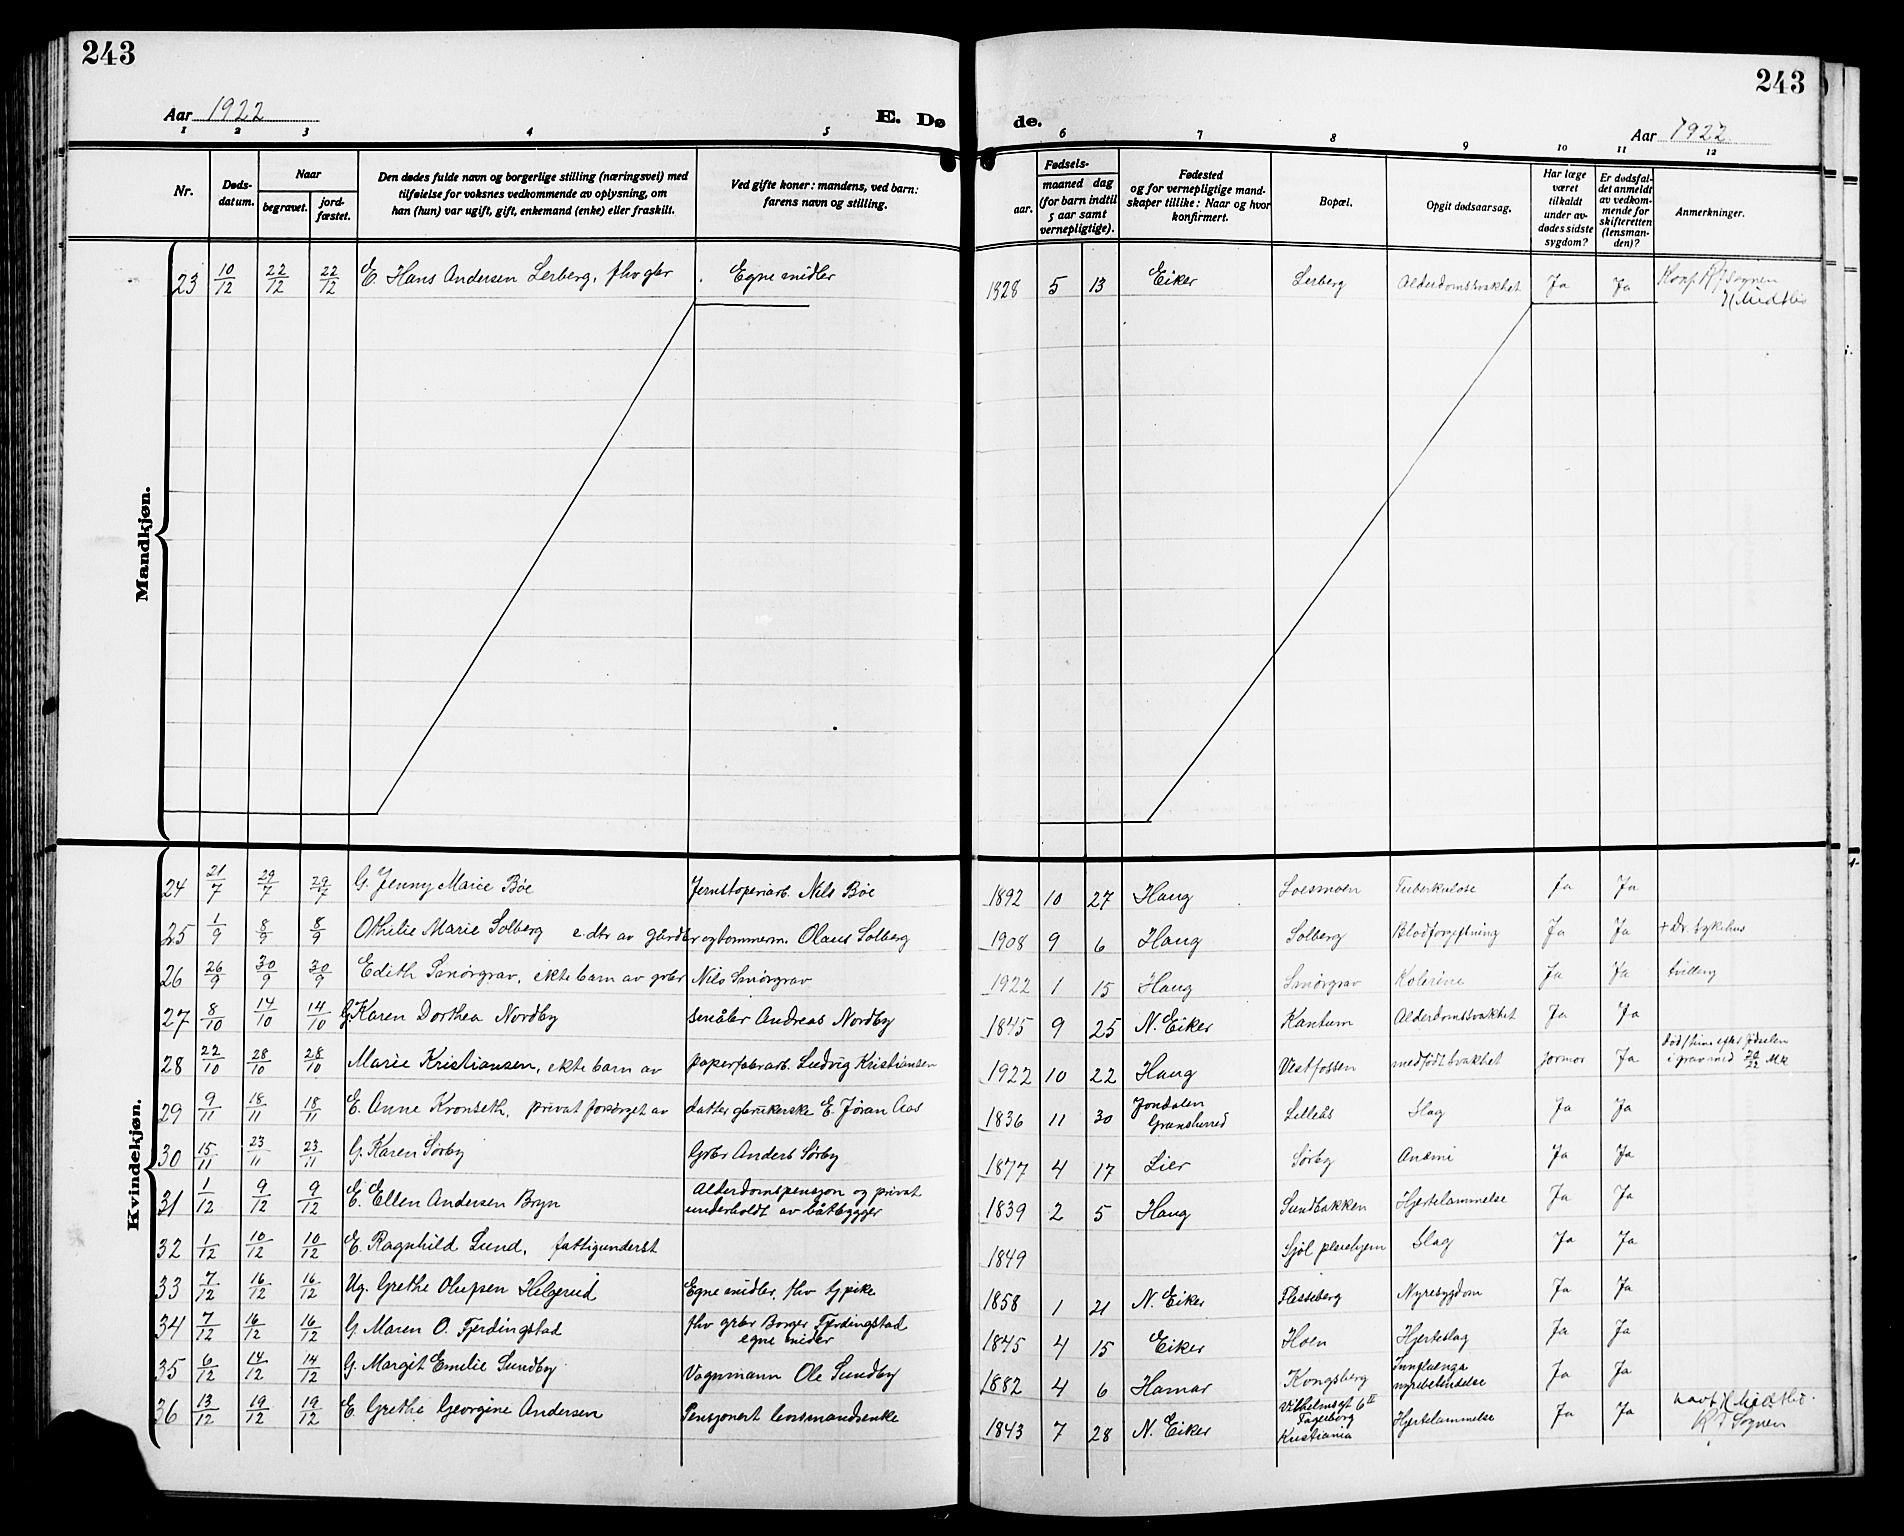 243
243
Aar 1922
E. Dø
de.
Aar 1922
1 2 3 4 5 6 7 8 9 10 11 12
Nr.
Døds-
datum.
Naar
begravet.
jord-
fæstet.
Den dødes fulde navn og borgerlige stilling (næringsvei) med
tilføielse for voksnes vedkommende av oplysning, om
han (hun) var ugift, gift, enkemand (enke) eller fraskilt.
Ved gifte koner: mandens, ved barn:
farens navn og stilling.
Fødsels-
aar.
maaned dag
(for barn indtil
5 aar samt
vernepligtige).
Fødested
og for vernepligtige mand-
skaper tillike: Naar og hvor
konfirmert.
Bopæl.
Opgit dødsaarsag.
Har læge
været
tilkaldt
under av-
dødes sidste
sygdom?
Er dødsfal-
det anmeldt
av vedkom-
mende for
skifteretten
(lensman-
den)?
Anmerkninger.
Mandkjøn.
23 10/12 22/12 22/12 E. Hans Andersen Lerberg, fhv gbr Egne midler 1828 5 13 Eiker Lerberg Alderdomssvakhet Ja Ja
Kvindekjøn.
24 21/7 29/7 29/7 G. Jenny Marie Böe Jernstöperiarb. Nils Böe 1892 10 27 Haug Loesmoen Tuberkulose Ja Ja
25 1/9 8/9 8/9 Othilie Marie Solberg e. dtr av gårdbr og tömmerm. Olaus Solberg 1908 9 6 Haug Solberg Blodforgiftning Ja Ja + Dr. sykehus
26 26/9 30/9 30/9 Edith Smörgrav, ekte barn av gbr Nils Smörgrav 1922 1 15 Haug Smörgrav Kolerine Ja Ja tvilling
27 8/10 14/10 14/10 G. Karen Dorthea Nordby Andreas Nordby 1845 9 25 N. Eiker Kanhum Alderdomssvakhet Ja Ja
28 22/10 28/10 28/10 Marie Kristiansen, ekte barn av papirfabrarb. Ludvig Kristiansen 1922 10 22 Haug Vestfossen medfödt svakhet jormor Ja
29 9/11 18/11 18/11 E. Anne Kronseth, privat forsörget av datter gbrukerske E. Jöran Aas 1836 11 30 Jondalen
Gransherred Lilleås Slag Ja Ja
30 15/11 23/11 23/11 G. Karen Sörby Gbr Anders Sörby 1877 4 17 Lier Sörby Anemi Ja Ja
31 1/12 9/12 9/12 E. Ellen Andersen Bryn Alderdomspensjon og privat
underholdt av båtbygger 1839 2 5 Haug Sundbakken Hjertelammelse Ja Ja
32 1/12 10/12 10/12 E. Ragnhild Lund, fattigunderst 1849 Sjöl pleiehjem Slag Ja Ja
33 7/12 16/12 16/12 Ug. Grethe Olufsen Helgerud Egne midler, fhv tjpike 1858 1 21 N. Eiker Flesseberg Nyresygdom Ja Ja
34 7/12 16/12 16/12 G. Maren O. Fjerdingstad fhv gbr Borger Fjerdingstad
egne midler 1845 4 15 Eiker Hoen Hjerteslag Ja Ja
35 6/12 14/12 14/12 G. Margit Emilie Sundby Vognmann Ole Sundby 1882 4 6 Hamar Kongsberg Innfluenza
nyrebetendelse Ja Ja
36 13/12 19/12 19/12 E. Grethe Georgine Andersen Pensjonert lensmandsenke 1843 7 28 N. Eiker Vilhelmsgt 6 II
Fagerborg
Kristiania Hjertelammelse Ja Ja